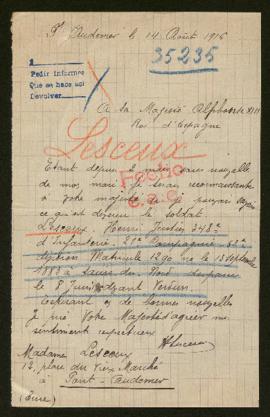 Pt Audemer le 14 Août 1916
35235
1
Pedir informes
Que se hace así
Devolver
A Sa Majesté Alphonse XIII
Roi d'Espagne
Lesceux
Etant depuis 2 mois sans nouvelle
de mon mari je serai reconnaissante
à votre majesté si je pouvais savoir
ce qu'est devenu le soldat
Lesceux Henri Justin 348e
d'Infanterie 21e Compagnie
Matricule 1290 né le 15 septembre
1883 à du Nord disparu
le 8 Juin devant Verdun
Espérant de bonnes nouvelles
je prie Votre Majesté agréer mes
sentiments respectueux
Madame Lesceux
12, place du Vieux Marché
à Pont-Audemer
(Eure)